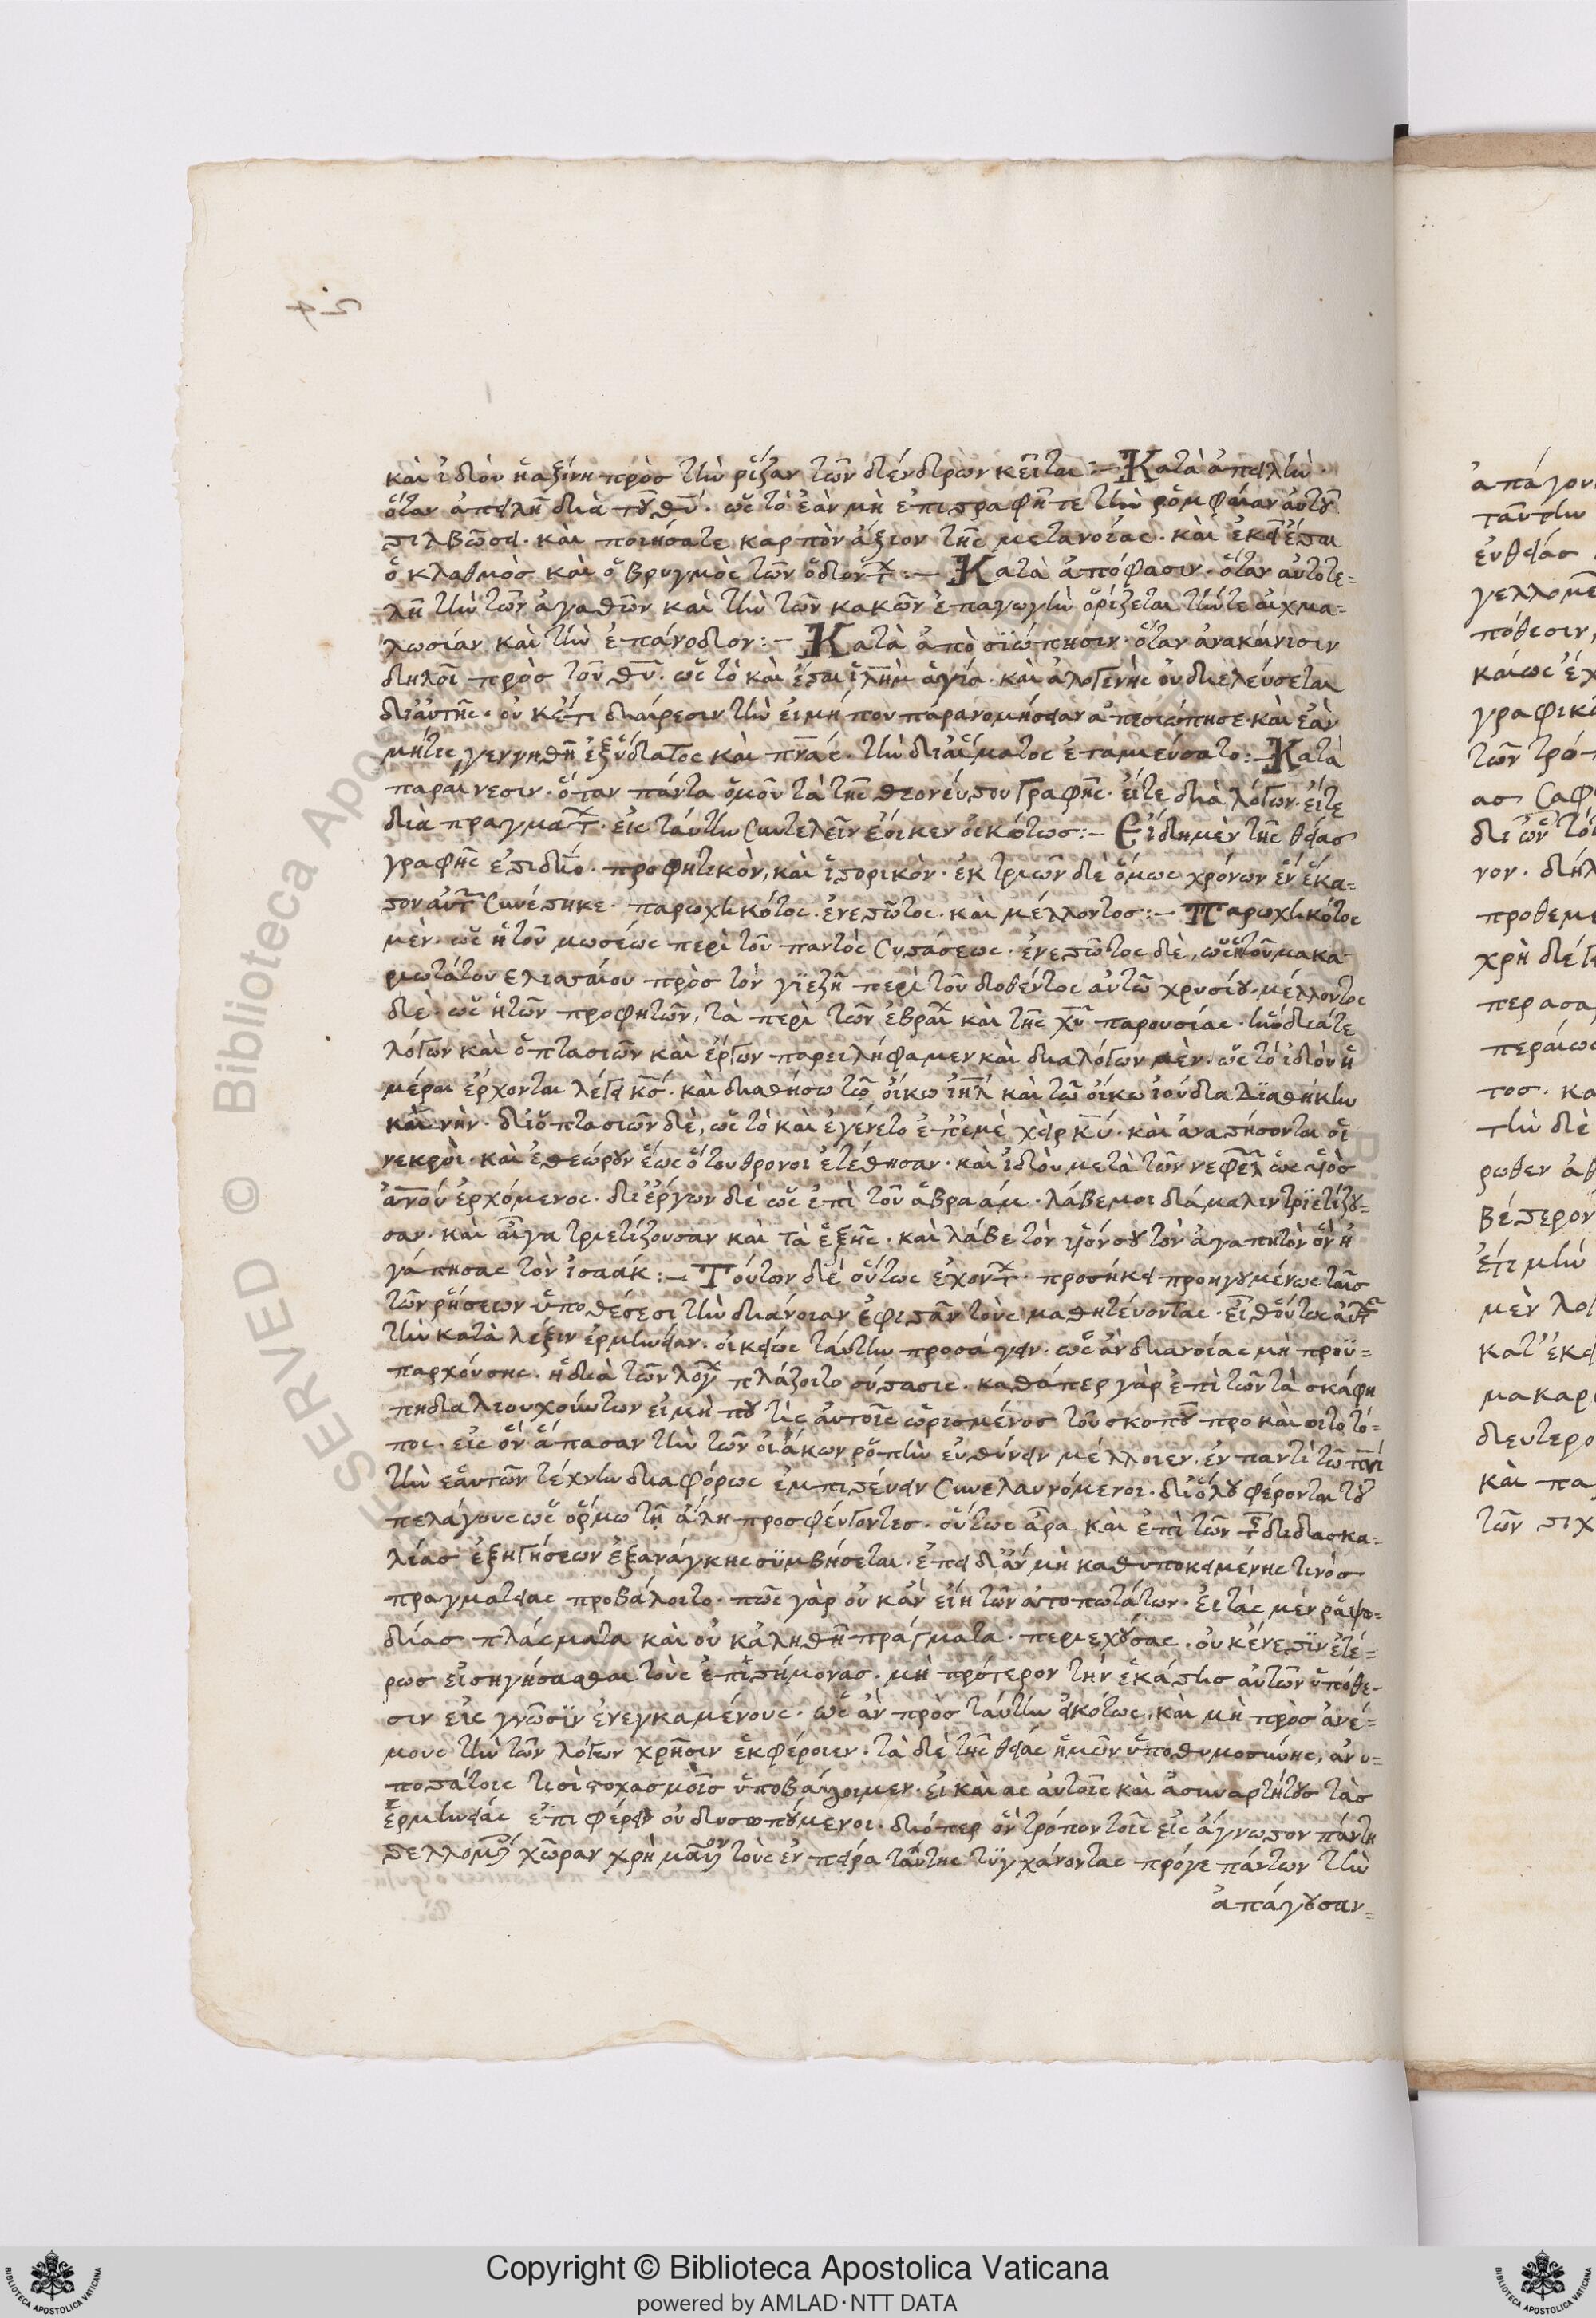 καὶ ἰδιὸυ ἡ αξίνη πρὸς τὴν ρίζαν τῶν δένδρων κεῖται :— Κατὰ ἀπειλὴν ·
ὅταν ἀπειλῆ διὰ τοῦ θῦ · ὡς τὸ ἐὰν μὴ ἐπιστραφῆτε τὴν ρομφαίαν αὐτοῦ
στιλβώσει · καὶ ποιήσατε καρπὸν ἄξιον τῆς μετανοίας · καὶ ἐκεῖ ἔσται
ὁ κλαθμὸς καὶ ὁ βρυγμὸς τῶν ὀδόντ :— Κατὰ ἀπόφασιν · ὅταν αὐτοτε=
λῆ τὴν τῶν ἀγαθῶν καὶ τὴν τῶν κακῶν ἐπαγωγὴν ὁρίζεται τήντε αἰχμα=
λωσίαν καὶ τὴν ἐπάνοδον :— Κατὰ ἀπὸ σϊώπησιν · ὅταν ἀνακαίνισιν
δηλοῖ πρὸς τὸν θν · ὡς τὸ καὶ ἔσται ἱλημ ἁγία · καὶ ἀλογενὴς οὐ διελεύσεται
δι αὐτῆς · οὐ κέτι διαίρεσιν τὴν εἰμήπου παρανομήσειαν ἀπεσιώπησε · καὶ ἐὰν
μήτις γεννηθῆ ἐξ ὕδατος καὶ πνς · τὴν δι αἵματος ἐταμιεύσατο :— Κατὰ
παραινεσιν · ὅταν πάντα ὁμοῦ τὰ τῆς θεοπνεύστου γραφῆς · εἴτε διὰ λόγων · εἴτε
δια πραγμάτ · εἰς ταύτην συντελεῖν ἔοικεν εἰκότως :— Εἴδη μὲν τῆς θείας
γραφῆς ἐστι δύο · προφητικὸν, καὶ ἱστορικὸν · ἐκ τριῶν δὲ ὅμως χρόνων ἓν ἕκα=
στον αὐτ συνέστηκε · παρωχηκότος · ἐνεστῶτος · καὶ μέλλοντος :— Παρωχηκότος
μὲν · ὡς ἡ τοῦ μωσέως περὶ τοῦ παντὸς συστάσεως · ἐνεστῶτος δὲ, ὡς ἡ τοῦ μακα
ριωτάτου ελισσαίου πρὸς τὸν γϊεζῆ περὶ τοῦ δοθέντος αὐτῶ χρυσίου · μέλλοντος
δὲ · ὡς ἡ τῶν προφητῶν, τὰ περὶ τῶν ἑβραί καὶ τῆς χυ παρουσίας ·
λόγων καὶ ὀπτασιῶν καὶ ἔργων παρειλήφαμεν καὶ διαλόγων μὲν · ὡς τὸ ἰδιὸν ἡ
μέραι ἔρχονται λέγει κς · καὶ διαθήσω τῶ οἴκω ιηλ καὶ τῶ οἴκω ἰούδα διαθήκην
καινήν · δι ὀπτασιῶν δὲ, ὡς τὸ καὶ ἐγένετο ἐπ ἐμὲ χεὶρ κυ · καὶ ἀναστήσονται οἱ
νεκροὶ · καὶ ἐθεώρουν ἕως ὅτου θρονοι ἐτέθησαν · καὶ ἰδιοὺ μετὰ τῶν νεφελ ὡς υἱὸς
ἀνου ἐρχόμενος · δι ἔργων δὲ ὡς ἐπὶ τοῦ ἁβραάμ · λάβε μοι διάμαλιν τριετίζου=
σαν · καὶ αἶγα τριετίζουσαν καὶ τὰ ἑξῆς · καὶ λάβε τὸν υἱόν σου τὸν ἀγαπητὸν ὃν ἠ
γάπησας τὸν ἰσαάκ :— Τούτων δὲ οὕτως ἐχόντ · προσήκει προηγουμένως ταῖς
τῶν ῥήσεων ὑποθέσεσι τὴν διάνοιαν ἐφιστᾶν τοὺς μαθητεύοντας · εἶθ οὕτως αὐτ
τὴν κατὰ λέξιν ἑρμηνείαν · οἰκείως ταύτην προσάγειν · ὡς ἂν διανοίας μὴ προϋ=
παρχούσης · ἡ διὰ τῶν λόγ πλάζοιτο σύστασις · καθάπερ γὰρ ἐπὶ τῶν τὰ σκάφη
πηδαλιουχούντων εἰ μή που τὶς αὐτοῖς ὡρισμένος τοῦ σκοποῦ προ καὶ οιτο τό=
πος · εἰς ὃν ἅπασαν τὴν τῶν οἰάκων ροπὴν εὐθύνειν μέλλοιεν · ἐν παντὶ τῶ πνι
τὴν ἑαυτῶν τέχνην διαφόρως ἐμπιστεύειν συνελαυνόμενοι · δι ὅλου φέρονται τοῦ
πελάγους ὡς ὅρμω τῆ ἄλη προσφέυγοντες · οὕτως ἄρα καὶ ἐπὶ τῶν τ διδασκα=
λίας ἐξηγήσεων ἐξανάγκης συμβήσεται · ἐπειδὰν μὴ καθυποκειμένης τινὸς
πραγματείας προβάλοιτο · πῶς γὰρ οὐ κἂν εἴη τῶν ἀτοπωτάτων · εἰ τὰς μὲν ραψω=
δίας πλάσματα καὶ οὐ κἀληθῆ πράγματα · περιεχούσας · οὐκ ἔνεστϊν ἑτέ=
ρως εἰσηγήσασθαι τοὺς ἐπιστήμονας · μὴ πρότερον τὴν ἑκάστης αὐτῶν ὑπόθε-
σιν εἰς γνῶσϊν ἐνεγκαμένους · ὡς ἂν πρὸς ταύτην εἰκότως, καὶ μὴ πρὸς ἀνέ=
μους τὴν τῶν λόγων χρῆσιν ἐκφέροιεν · τὰ δὲ τῆς θείας ἡμῶν ὑποθυμοσύνης, ἀνυ=
ποστάτοις τισὶ στοχασμοῖς ὑποβάλοιμεν · εἰ καὶ ας αὐτοῖς καὶ ἀσυναρτήτους τὰς
ἑρμηνείας ἐπιφέρειν οὐ δυσωπούμενοι · διόπερ ὃν τρόπον τοῖς εἰς ἄγνωστον πάντη
στελλομ χῶραν χρὴ τοὺς ἐν πείρα ταύτης τϋγχάνοντας πρόγε πάντων τὴν
ἀπάγουσαν=